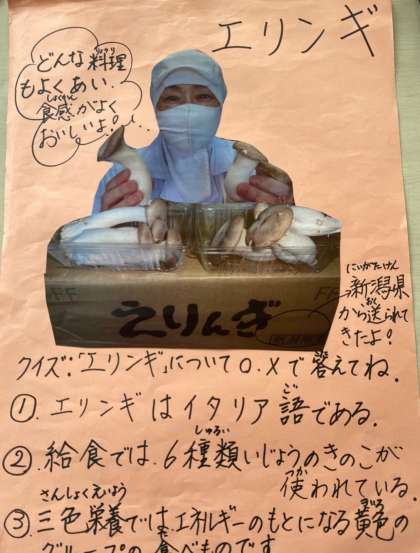 エリンギ
どんな料理
りょうり
もよくあい、
食感がよく
しょくかん
おいしいよ!
えりんぎ
にいがたけん
新潟県
おく
から送られて
きたよ!
クイズ:「エリンギ」について○、×で答えてね。
①.エリンギはイタリア語である。
ご
②.給食では、6種類いじょうのきのこが
しゅるい
つか
使われている。
さんしょくえいよう
③.三色栄養ではエネルギーのもとになる黄色の
きいろ
グループの食べものです